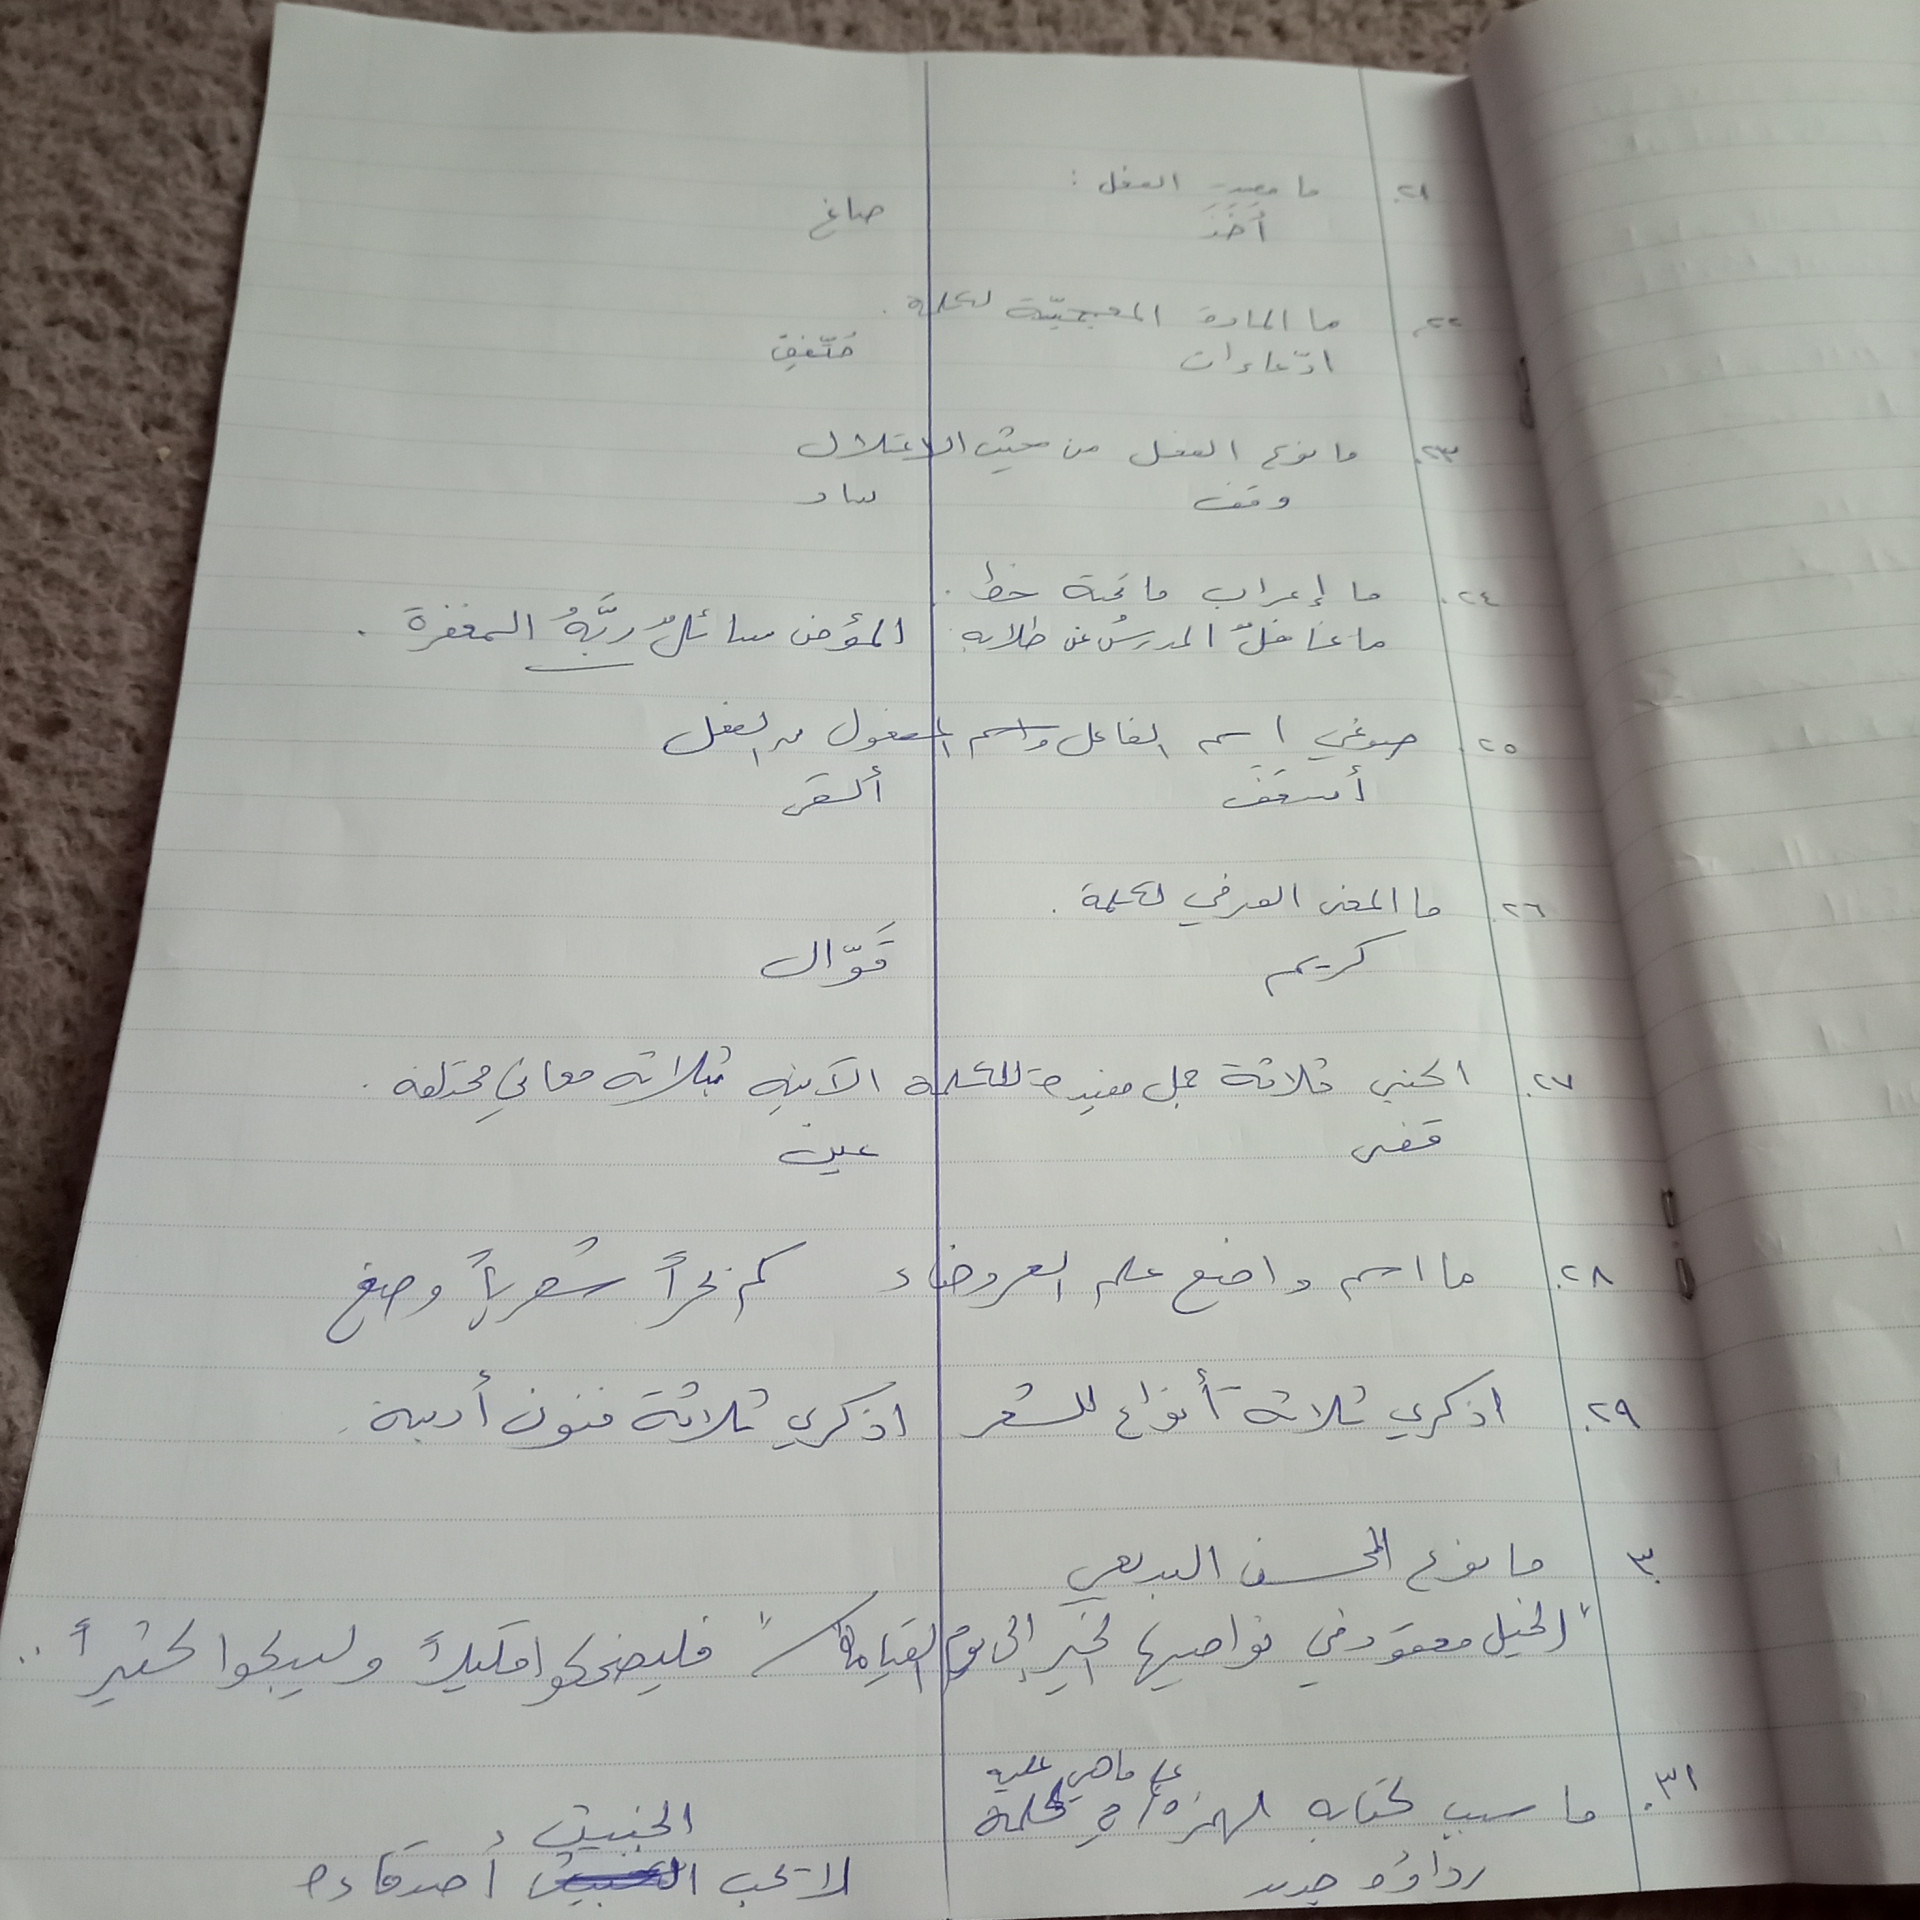 ٢١. ما مصدر الفعل :
أَخَذَ صاغ
٢٢. ما المادة المعجميّة لكلمة .
ادّعاءات مُتّفِق
٢٣. ما نوع الفعل من حيث الاعتلال
وقف ساد
٢٤. ما إعراب ما تحته خط .
ما غافلٌ المدرسُ عن طلابه المؤمن سائلٌ ربَّهُ المغفرة .
٢٥. صوغي اسم الفاعل واسم المفعول من الفعل
أسقف
٢٦. ما المعنى الصرفي لكلمة .
كريم قَوّال
٢٧. اكتبي ثلاثة جمل مفيدة للكلمة الآتية بثلاثة معاني مختلفة .
قضى عين
٢٨. ما اسم واضع علم العروض كم بحراً شعرياً وضع
٢٩. اذكري ثلاثة أنواع للشعر اذكري ثلاثة فنون أدبية .
٣٠ ما نوع المحسن البديعي
"الخيل معقود في نواصيها الخير إلى يوم القيامة" / "فليضحكوا قليلاً وليبكوا كثيراً"
على ماهي عليه
٣١. ما سبب كتابة الهمزة في كلمة الخبيث
رداؤه جديد لا تحب أصدقاءه